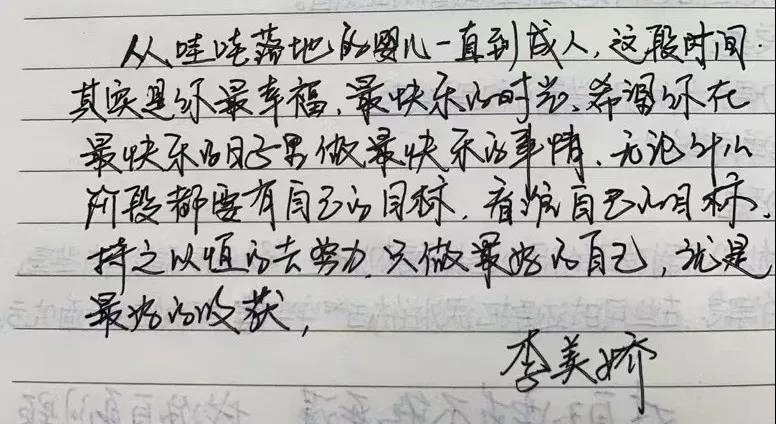 从哇哇落地的婴儿一直到成人,这段时间.
其实是你最幸福、最快乐的时光、希望你在
最快乐的日子里做最快乐的事情、无论什么
阶段都要有自己的目标,看准自己的目标,
持之以恒的去努力,只做最好的自己,就是
最好的收获,
李美娇